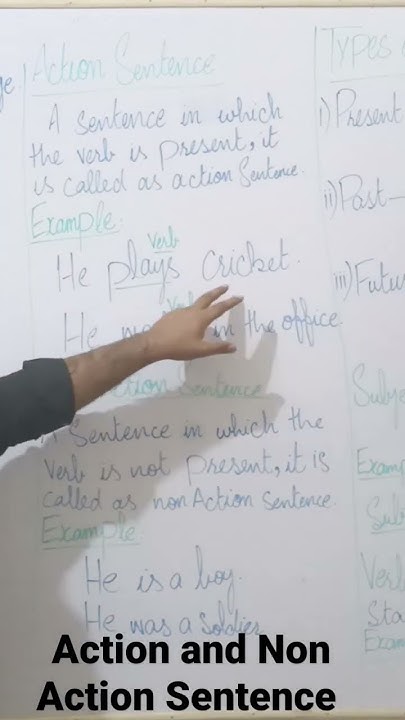 Action Sentence
A Sentence in which
the verb is present, it
is called as action Sentence.
Example:
Verb
He plays cricket.
He in the office.
ction Sentence
Sentence in which the
Verb is not present, it is
called as non Action Sentence.
Example:
He is a boy.
He was a Soldier.
Types
i) Present
ii) Past-
iii) Futu
Subje
Examp
Sub
Verb
Sta
Exam
Action and Non
Action Sentence